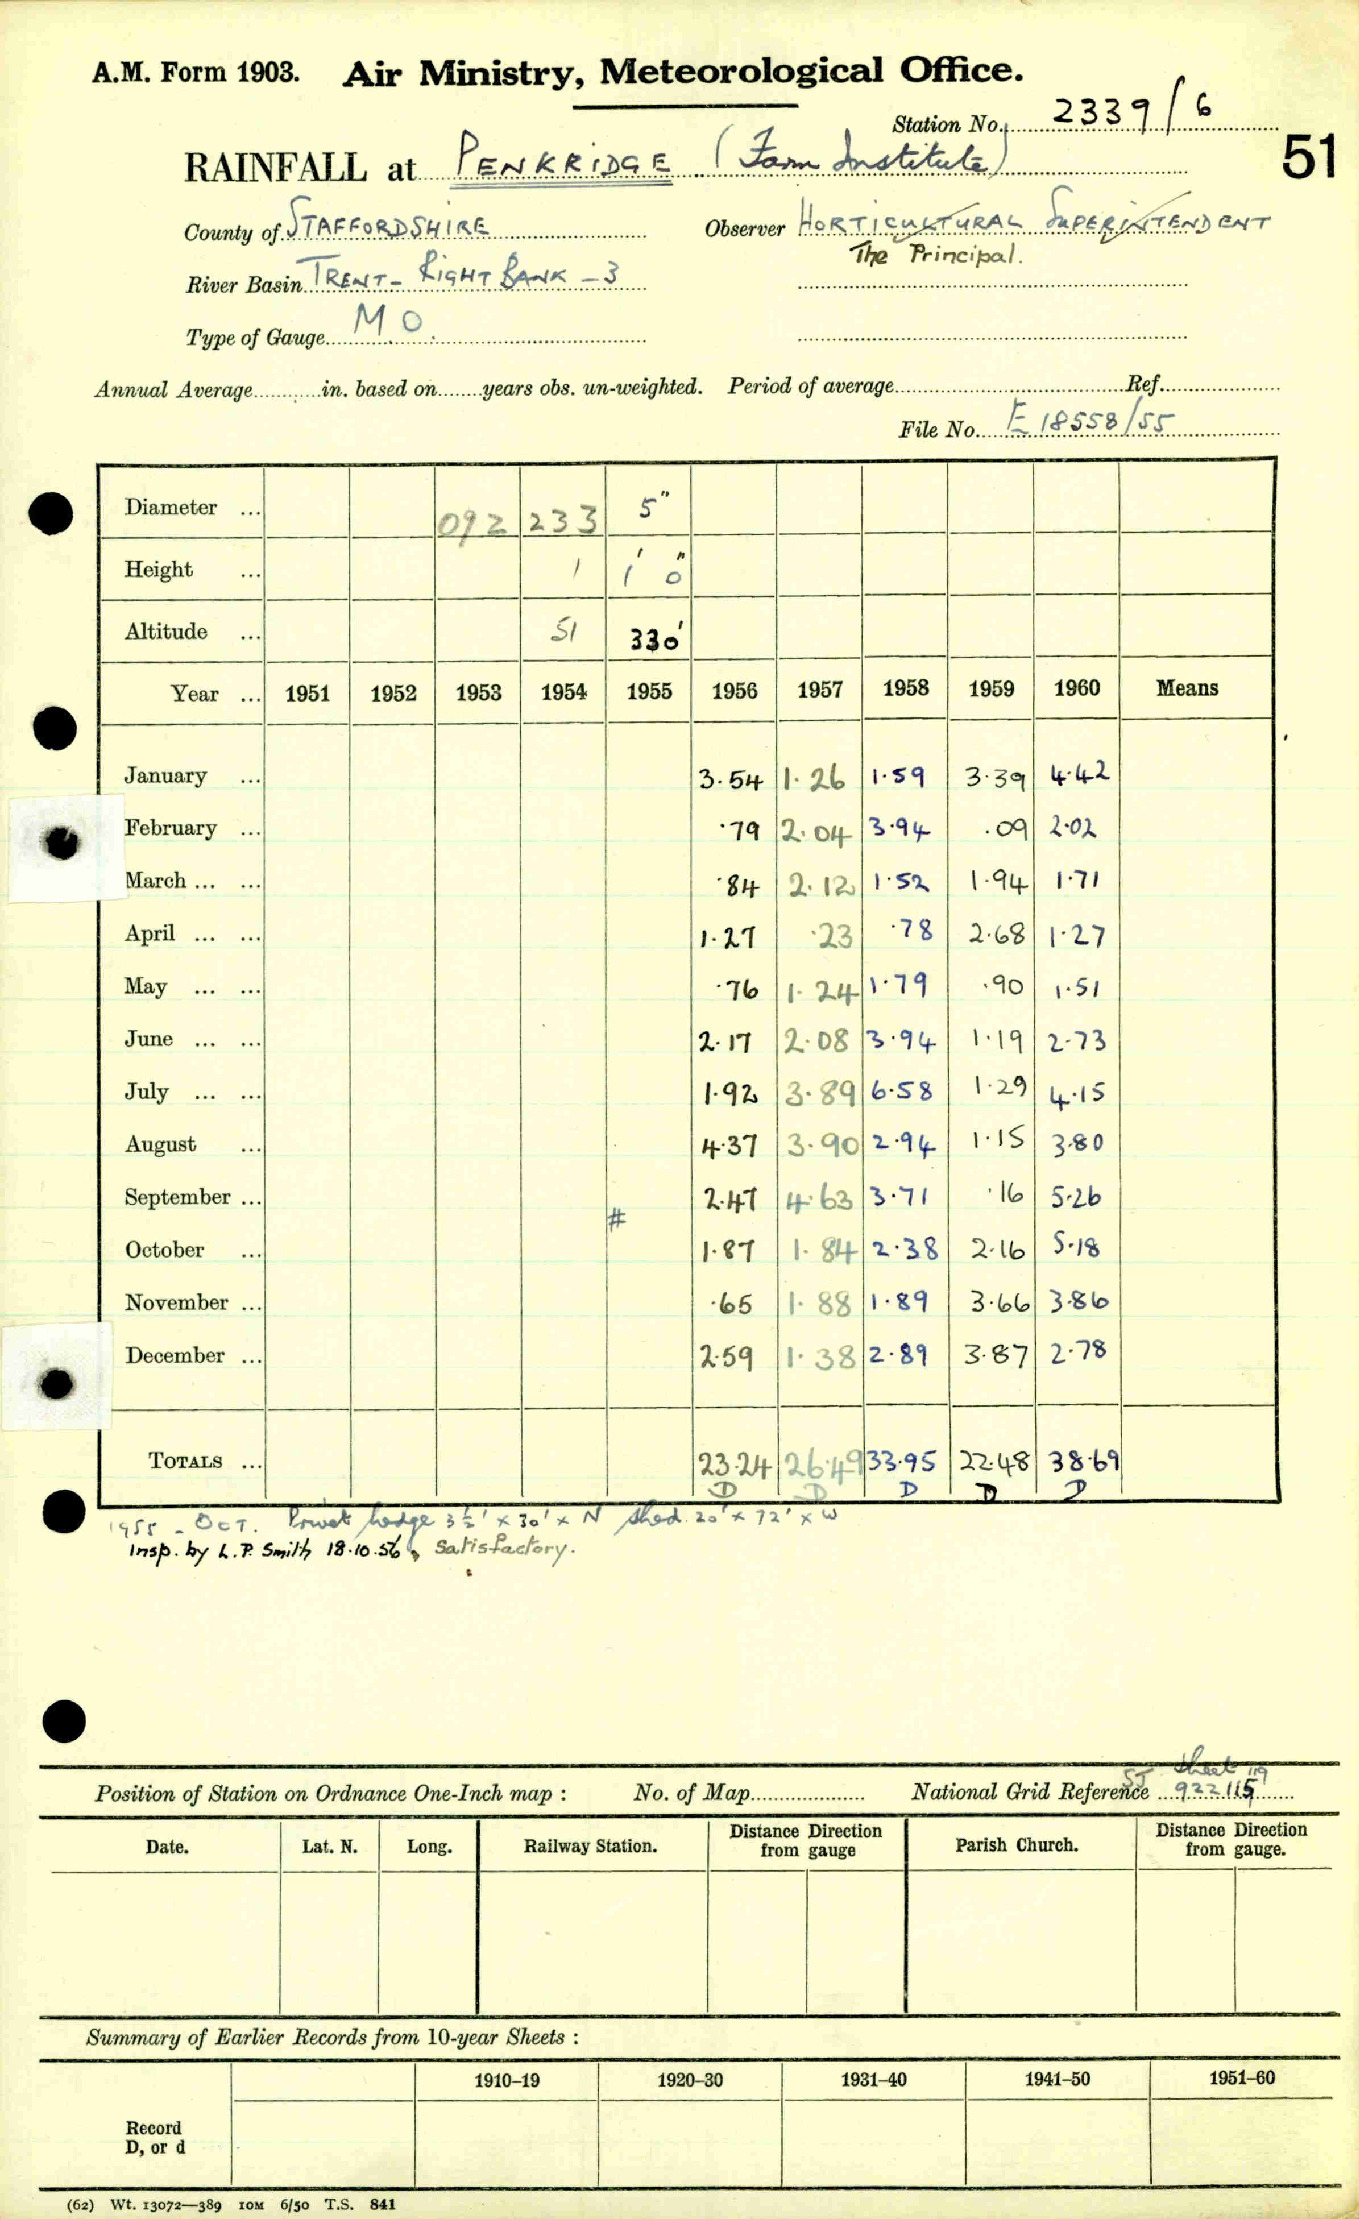 A.M. Form 1903. Air Ministry, Meteorological Office.
Station No. 2339/6
51
RAINFALL at PENKRIDGE (Farm Institute)
County of STAFFORDSHIRE Observer HORTICULTURAL SUPERINTENDENT
The Principal.
River Basin TRENT - RIGHT BANK - 3
Type of Gauge M O
Annual Average in. based on years obs. un-weighted. Period of average Ref.
File No. E 18558/55
Diameter ... 092 233 5"
Height ... 1 1' 0"
Altitude ... 51 330'
Year ... 1951 1952 1953 1954 1955 1956 1957 1958 1959 1960 Means
January ... 3.54 1.26 1.59 3.39 4.42
February ... .79 2.04 3.94 .09 2.02
March ... ... .84 2.12 1.52 1.94 1.71
April ... ... 1.27 .23 .78 2.68 1.27
May ... ... .76 1.24 1.79 .90 1.51
June ... ... 2.17 2.08 3.94 1.19 2.73
July ... ... 1.92 3.89 6.58 1.29 4.15
August ... 4.37 3.90 2.94 1.15 3.80
September ... 2.47 4.63 3.71 .16 5.26
#
October ... 1.87 1.84 2.38 2.16 5.18
November ... .65 1.88 1.89 3.66 3.86
December ... 2.59 1.38 2.89 3.87 2.78
TOTALS ... 23.24 26.49 33.95 22.48 38.69
D D D D D
1955 - OCT. Privet hedge 3½' x 30' x N shed 20' x 72' x W
Insp. by L.P. Smith 18.10.56, Satisfactory.
Sheet 119
Position of Station on Ordnance One-Inch map : No. of Map National Grid Reference SJ 922115
Date. Lat. N. Long. Railway Station. Distance from Direction gauge Parish Church. Distance from Direction gauge.
Summary of Earlier Records from 10-year Sheets :
1910–19 1920–30 1931–40 1941–50 1951–60
Record
D, or d
(62) Wt. 13072—389 10M 6/50 T.S. 841